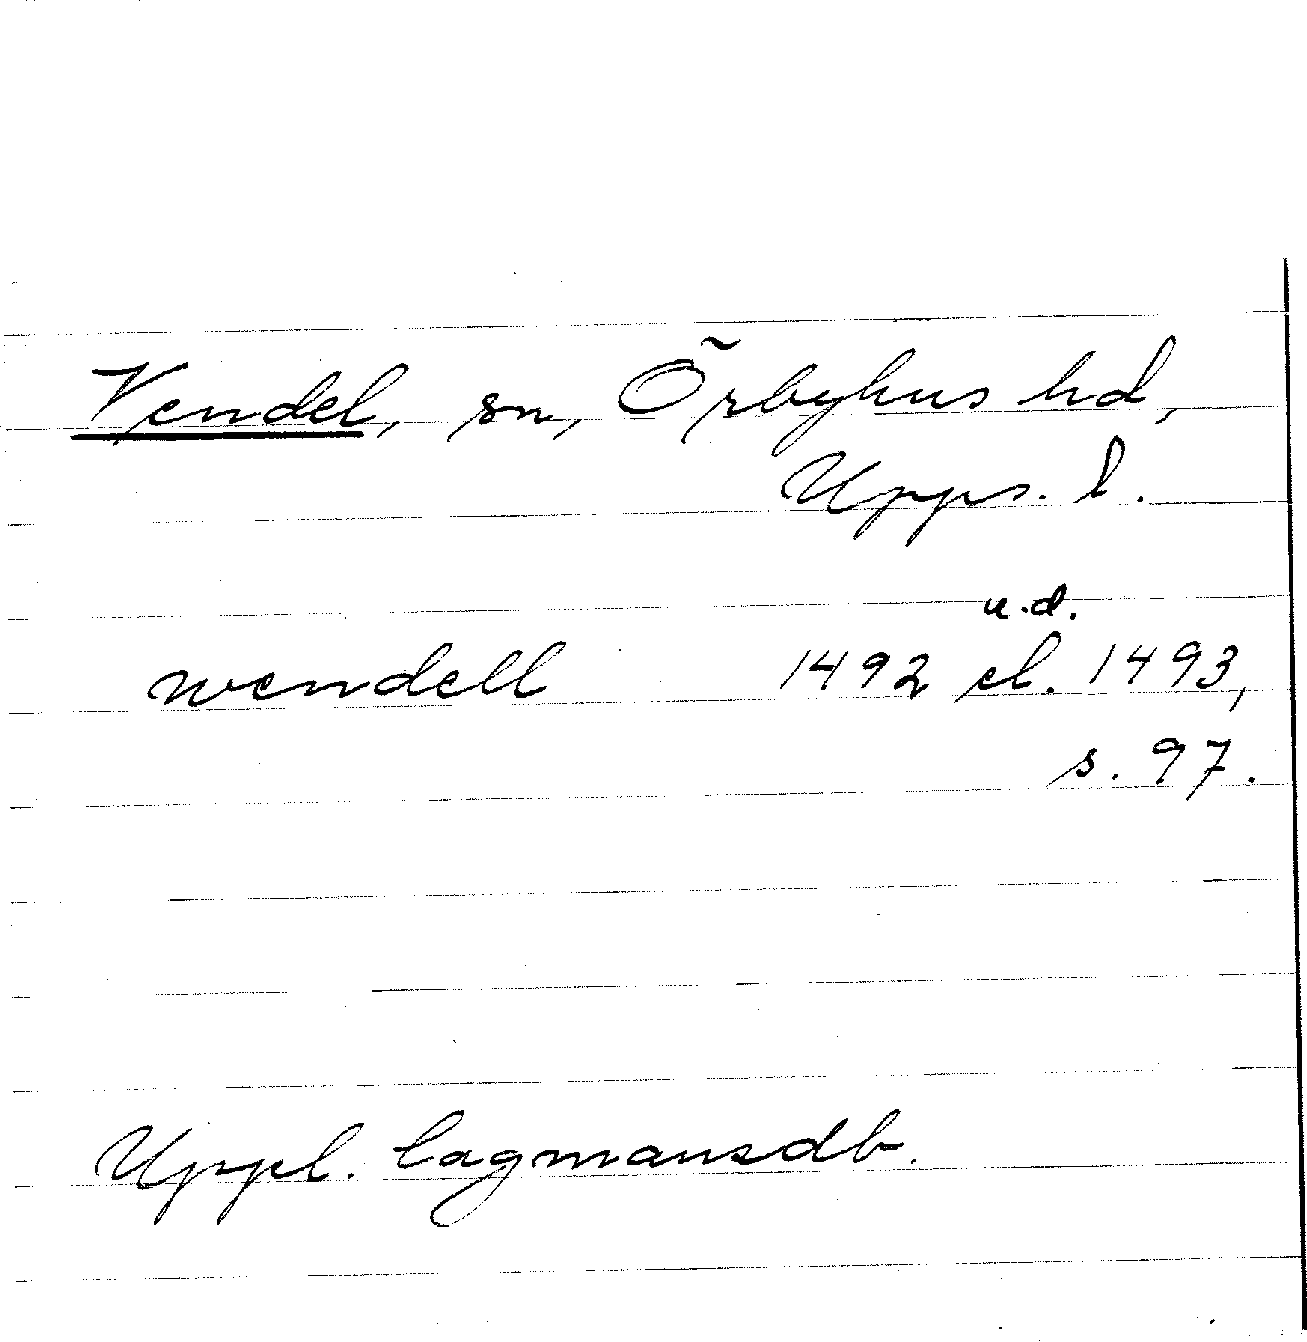 Vendel, sn, Örbyhus hd,
Upps. l.
u.d.
wendell 1492 el. 1493,
s. 97.
Uppl. lagmansdb.